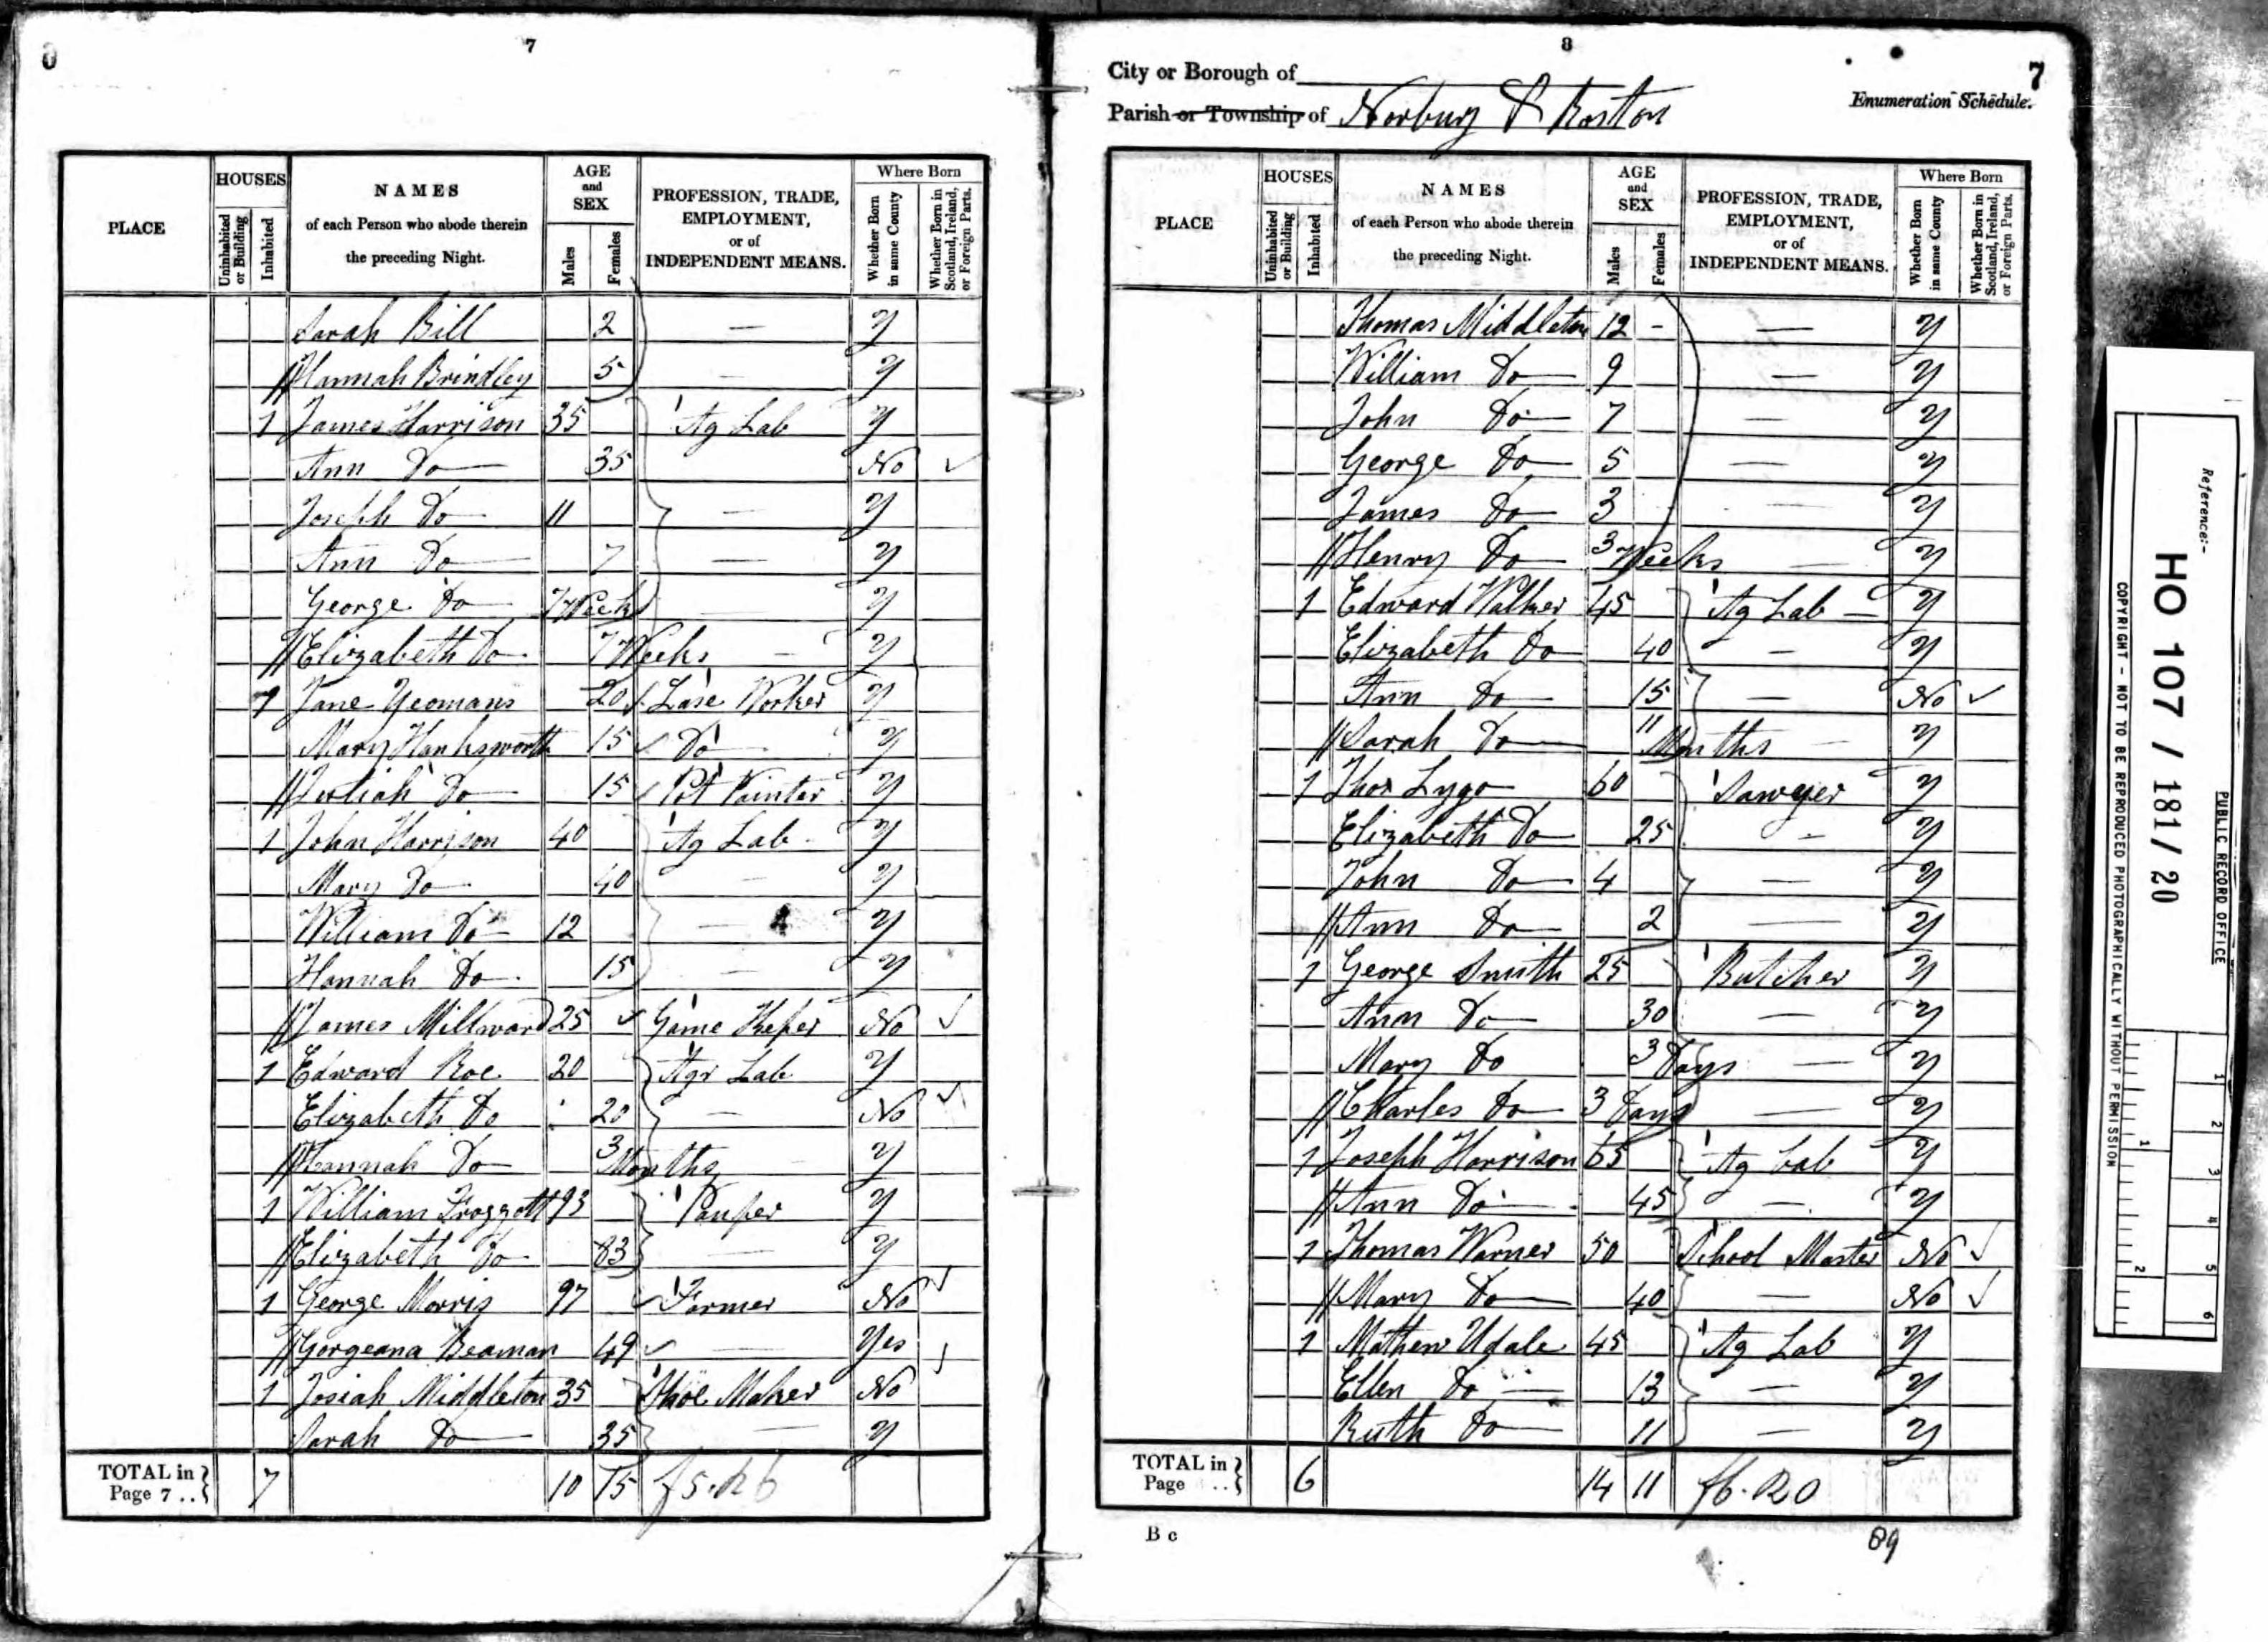 7
PLACE
HOUSES
Uninhabited or Building
Inhabited
NAMES
of each Person who abode therein
the preceding Night.
AGE
and
SEX
Males
Females
PROFESSION, TRADE,
EMPLOYMENT,
or of
INDEPENDENT MEANS.
Where Born
Whether Born in same County
Whether Born in Scotland, Ireland, or Foreign Parts.
Sarah Bill 2 — y
Hannah Brindley 5 — y
1 James Harrison 35 Ag Lab y
Ann Do 35 No
Joseph Do 11 — y
Ann Do 7 — y
George Do 7 Weeks — y
Elizabeth Do 7 Weeks — y
1 Jane Yeomans 20 Lase Worker y
Mary Hanksworth 15 Do y
Do 15 Pot Painter y
1 John Harrison 40 Ag Lab y
Mary Do 40 — y
William Do 12 — y
Hannah Do 15 — y
James Millward 25 Game Keper No
1 Edward Roe 20 Agr Lab y
Elizabeth Do 20 — No
Hannah Do 3 Months — y
1 William Froggott 93 Pauper y
Elizabeth Do 83 — y
1 George Morris 97 Farmer No
Gorgeana Beaman 49 — Yes
1 Josiah Middleton 35 Shoe Maker No
Sarah Do 35 — y
TOTAL in Page 7 .. 7 10 15
8
7
City or Borough of
Parish or Township of Norbury & Roston
Enumeration Schedule.
PLACE
HOUSES
Uninhabited or Building
Inhabited
NAMES
of each Person who abode therein
the preceding Night.
AGE
and
SEX
Males
Females
PROFESSION, TRADE,
EMPLOYMENT,
or of
INDEPENDENT MEANS.
Where Born
Whether Born in same County
Whether Born in Scotland, Ireland, or Foreign Parts.
Thomas Middleton 12 - — y
William Do 9 — y
John Do 7 — y
George Do 5 — y
James Do 3 — y
Henry Do 3 Weeks — y
1 Edward Walker 45 Ag Lab y
Elizabeth Do 40 — y
Ann Do 15 — No
Sarah Do 11 Months — y
1 Thos Lygo 60 Sawyer y
Elizabeth Do 25 — y
John Do 4 — y
Ann Do 2 — y
1 George Smith 25 Butcher y
Ann Do 30 — y
Mary Do 3 Days — y
Charles Do 3 Days — y
1 Joseph Harrison 65 Ag Lab y
Ann Do 45 — y
1 Thomas Warner 50 School Master No
Mary Do 40 — No
1 Mathew Udale 45 Ag Lab y
Ellen Do 13 — y
Ruth Do 11 — y
TOTAL in Page .. 6 14 11
B c
89
Reference:-
HO 107 / 181 / 20
PUBLIC RECORD OFFICE
COPYRIGHT - NOT TO BE REPRODUCED PHOTOGRAPHICALLY WITHOUT PERMISSION
1
2
3
4
5
6
1
2